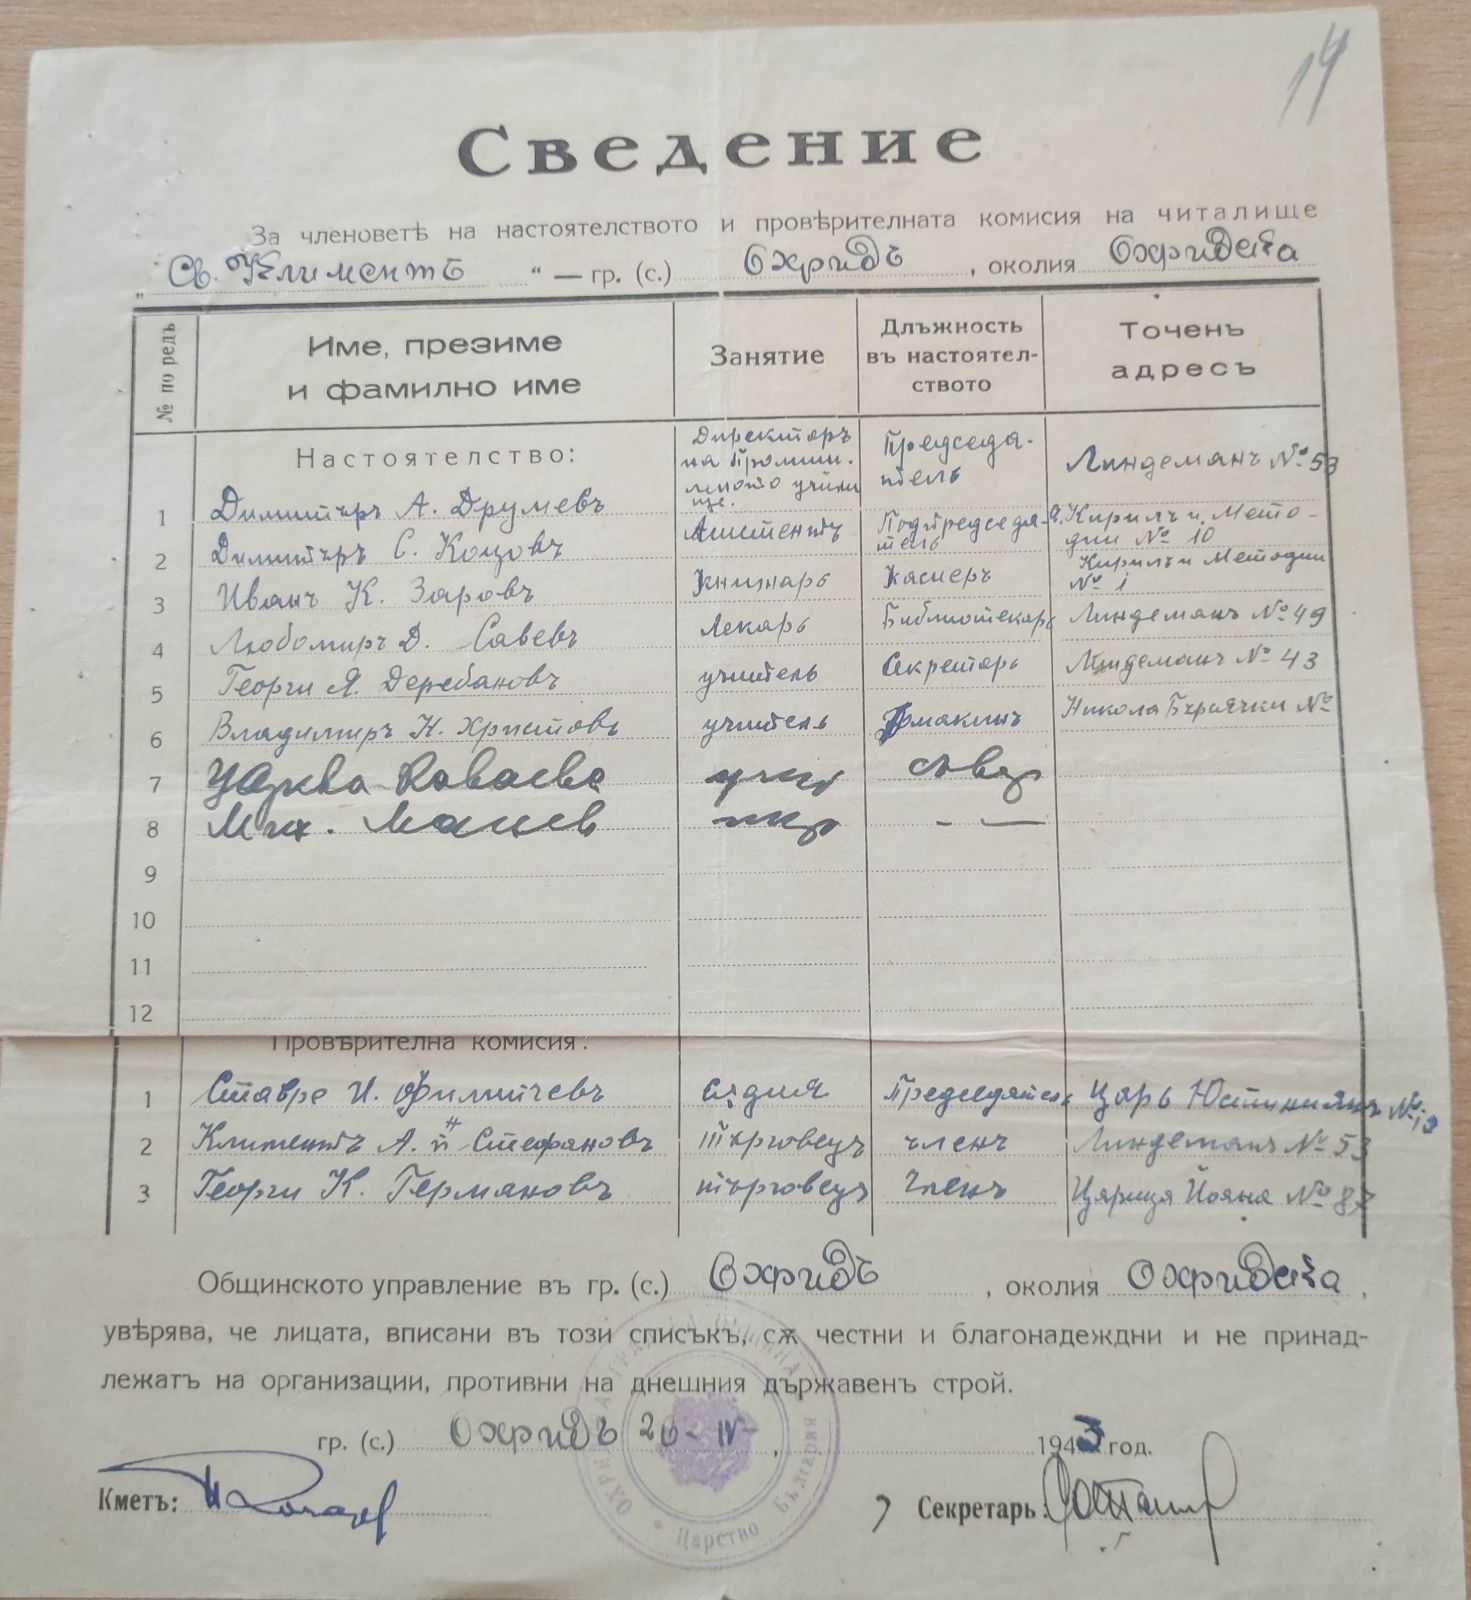 14
Сведение
За членоветѣ на настоятелството и провѣрителната комисия на читалище
„ Св. Климентъ “ — гр. (с.) Охридъ , околия Охридска
№ по редъ
Име, презиме и фамилно име
Занятие
Длъжность въ настоятел-ството
Точенъ адресъ
Настоятелство:
1 Димитъръ А. Друмевъ Директоръ на Промиш. леното учили ще. Председа-тель Линдеманъ № 53
2 Димитъръ С. Коцовъ Асистентъ Подпредседа-тель Кирилъ и Мето-дии № 10
3 Иванъ К. Заровъ Книжарь Касиеръ Кирилъ и Методии № 1
4 Любомиръ Д. Савевъ Лекарь Библиотекарь Линдеманъ № 49
5 Георги Я. Деребановъ учитель Секретарь Линдеманъ № 43
6 Владимиръ Н. Христовъ учитель Домакинъ Никола №
7
8 Мих. – —
9
10
11
12
Провѣрителна комисия:
1 Ставре И. Филипчевъ сѫдия Председатель Царь Юстиниянъ №
2 Климентъ А. п Стефановъ търговецъ членъ Линдеманъ № 53
3 Георги К. Германовъ търговецъ Членъ Царица Йоана № 87
Общинското управление въ гр. (с.) Охридъ , околия Охридска ,
увѣрява, че лицата, вписани въ този списъкъ, сѫ честни и благонадеждни и не принад-
лежатъ на организации, противни на днешния държавенъ строй.
гр. (с.) Охридъ 20 - IV - , 1943 год.
Кметъ:
Секретарь:
Царство България